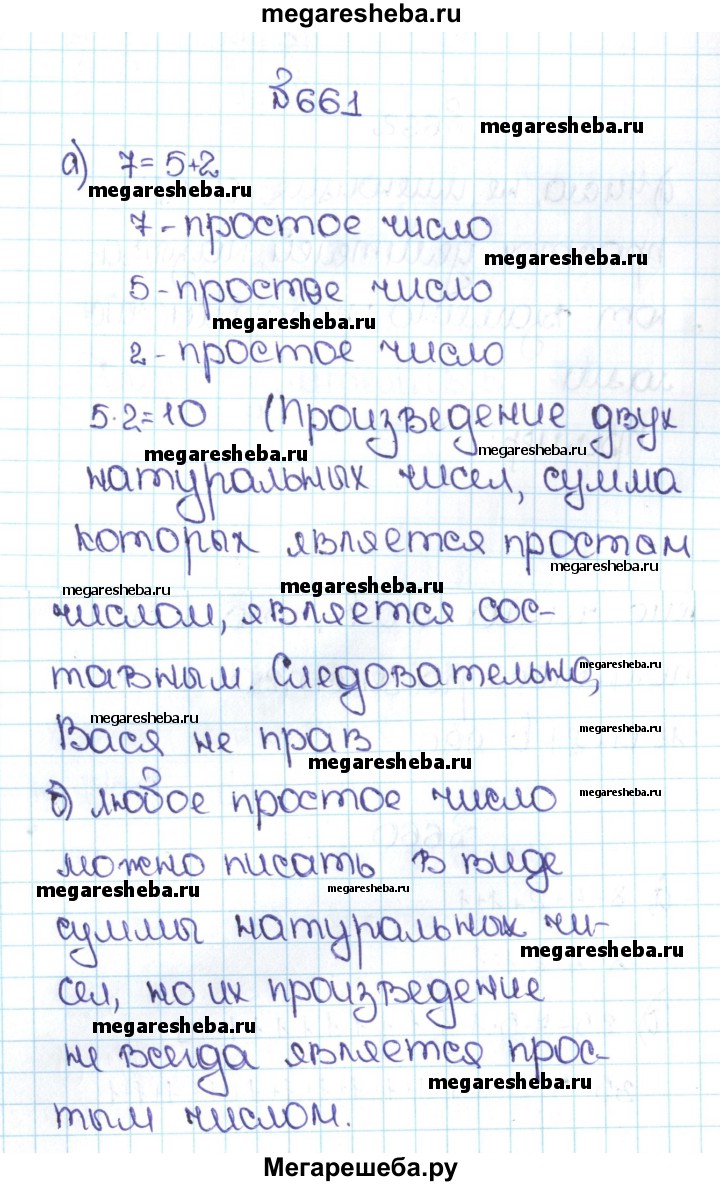 megaresheba.ru
№661
megaresheba.ru
а) 7=5+2
megaresheba.ru
7-простое число
megaresheba.ru
5-простое число
megaresheba.ru
2-простое число
5·2=10 (Произведение двух
megaresheba.ru megaresheba.ru
натуральных чисел, сумма
которых является простам
megaresheba.ru
megaresheba.ru megaresheba.ru
числом, является сос-
megaresheba.ru
тавным. Следовательно,
megaresheba.ru megaresheba.ru
Вася не прав
megaresheba.ru
б) любое простое число megaresheba.ru
можно писать в виде
megaresheba.ru megaresheba.ru
суммы натуральных чи-
megaresheba.ru
сел, но их произведение
megaresheba.ru
не всегда является прос-
megaresheba.ru
тым числом.
Мегарешеба.ру